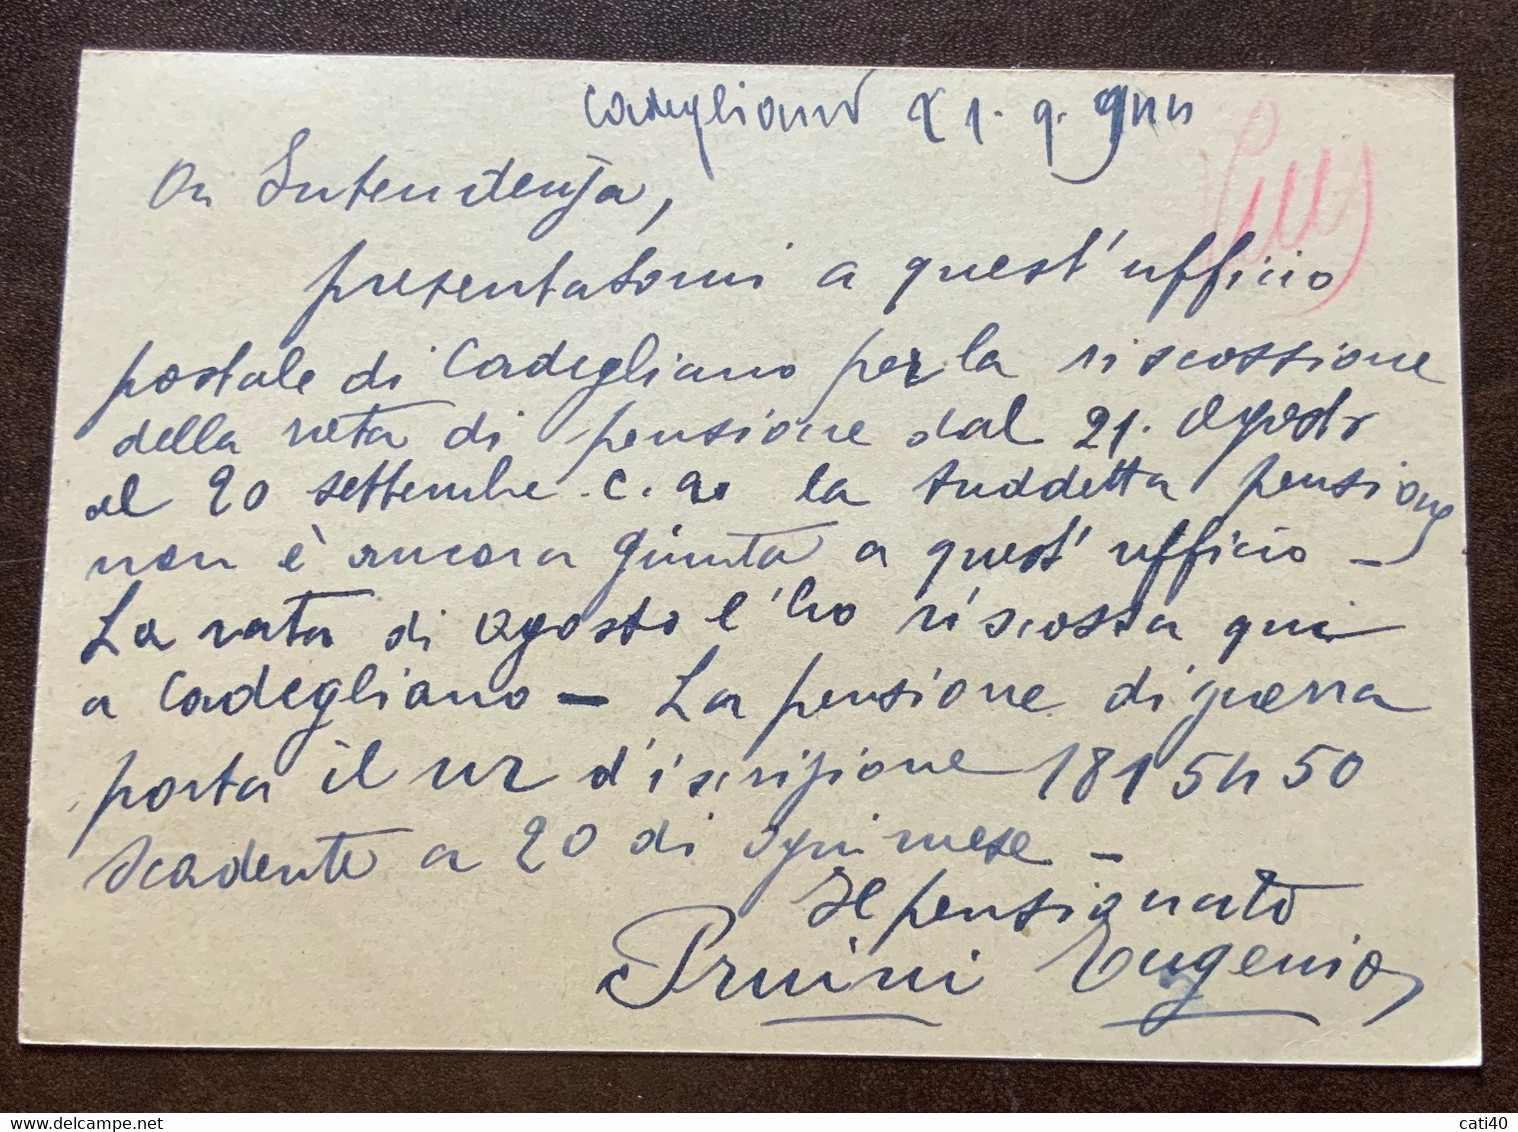 Cadegliano 21.9.944
On Intendenza,
presentatomi a quest'ufficio
postale di Cadegliano per la riscossione
della rata di pensione dal 21. Agosto
al 20 settembre c.a. la suddetta pensione
non è ancora giunta a quest'ufficio -
La rata di agosto l'ho riscossa qui
a Cadegliano - La pensione di guerra
porta il nr d'iscrizione 1815450
scadente a 20 di ogni mese -
Il pensionato
Pruini Eugenio
cati40